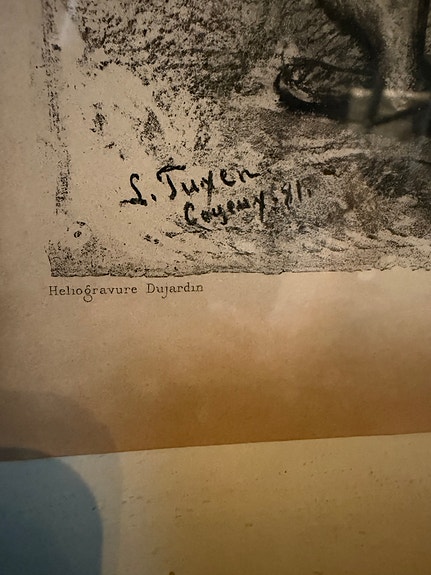 L. Tuxen
Cayeux. 81.
Heliogravure Dujardin